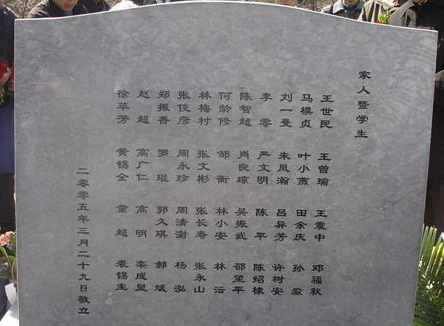 家人暨学生
王世民 王曾瑜 王震中 邓福秋
马模贞 叶小燕 田余庆 孙淼
刘一曼 朱凤瀚 吕异芳 许树安
李零 严文明 陈平 陈绍棣
陈智超 肖良琼 吴振武 邵望平
何龄修 邹衡 林小安 林沄
林梅村 张文彬 张长寿 张永山
张俊彦 周永珍 周清澍 杨泓
郑振香 罗琨 郭久琪 郝斌
赵超 高广仁 高明 栾成显
徐苹芳 黄锡全 童超 裘锡圭
二〇〇五年三月二十九日敬立